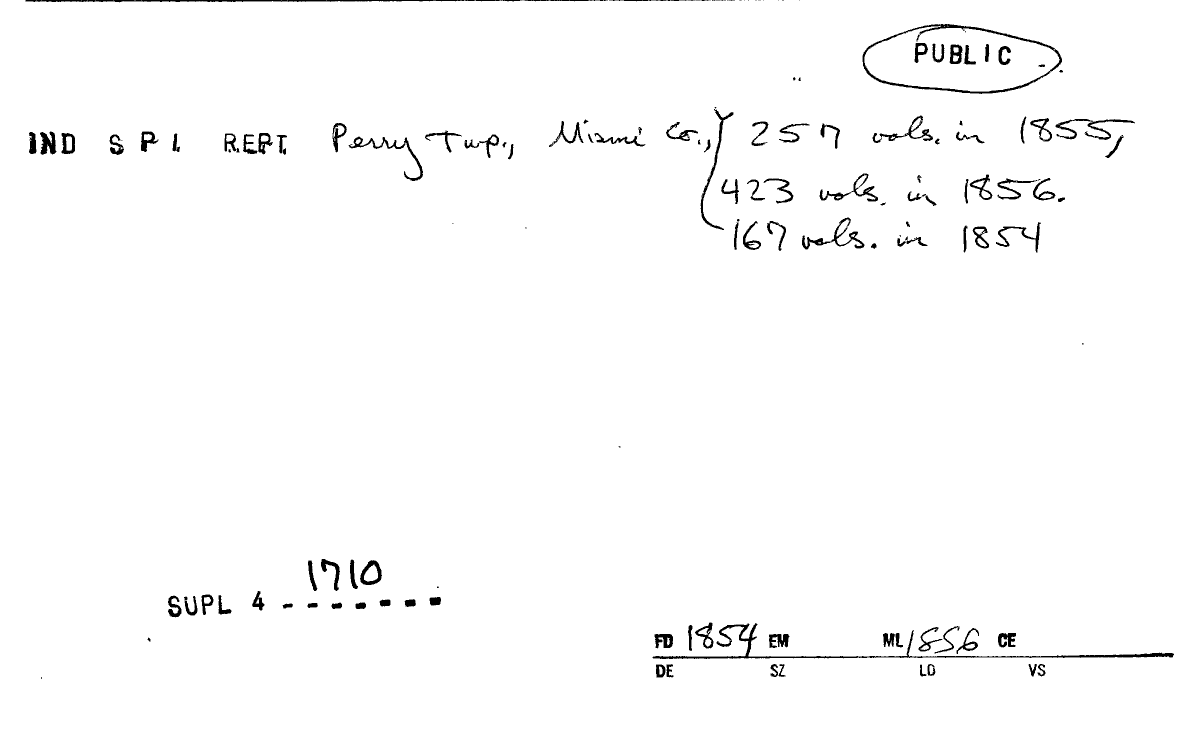 PUBLIC
IND S P I REPT Perry Twp., Miami Co., 257 vols. in 1855,
423 vols. in 1856.
167 vols. in 1854
1710
SUPL 4 - - - - - - -
FD 1854 EM ML 1856 CE
DE SZ LO VS